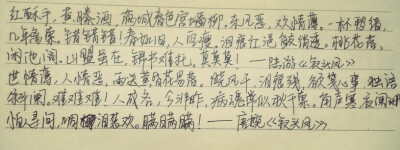 红酥手,黄藤酒,满城春色宫墙柳。东风恶,欢情薄。一杯愁绪,
几年离索,错错错!春如旧,人空瘦,泪痕红浥鲛绡透。桃花落,
闲池阁。山盟虽在,锦书难托。莫莫莫!——陆游《钗头凤》
世情薄,人情恶,雨送黄昏花易落。晓风干,泪痕残,欲笺心事,独语
斜阑。难难难!人成各,今非昨,病魂常似秋千索。角声寒,夜阑珊
怕人寻问,咽泪装欢。瞒瞒瞒!——唐婉《钗头凤》